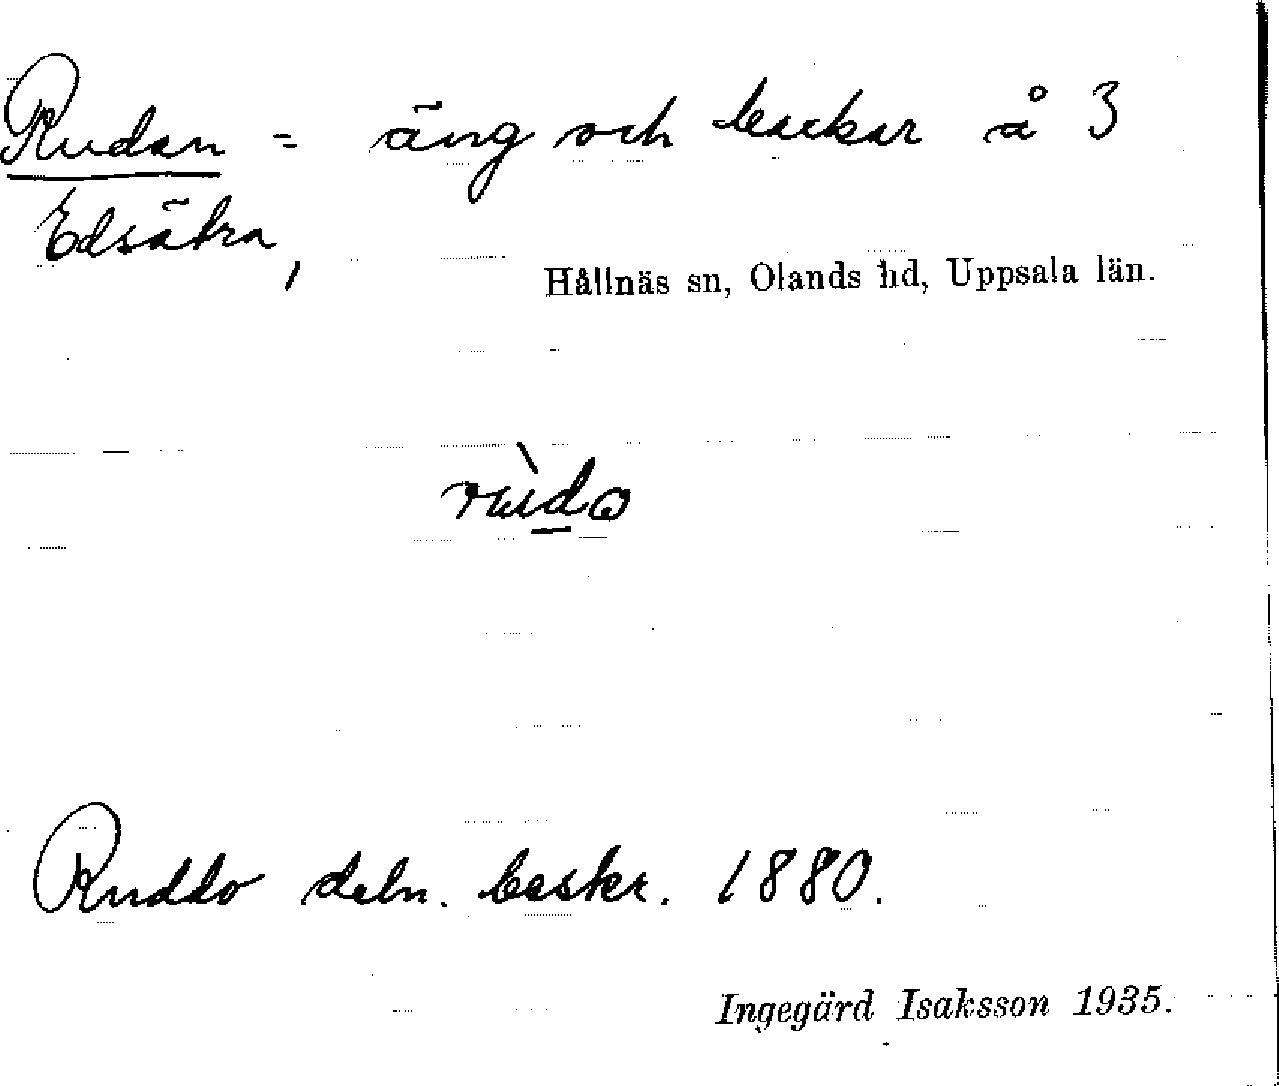 Rudan = äng och backar å 3
Edsätra,
Hållnäs sn, Olands hd, Uppsala län.
Ruddo deln. beskr. 1880.
Ingegärd Isaksson 1935.